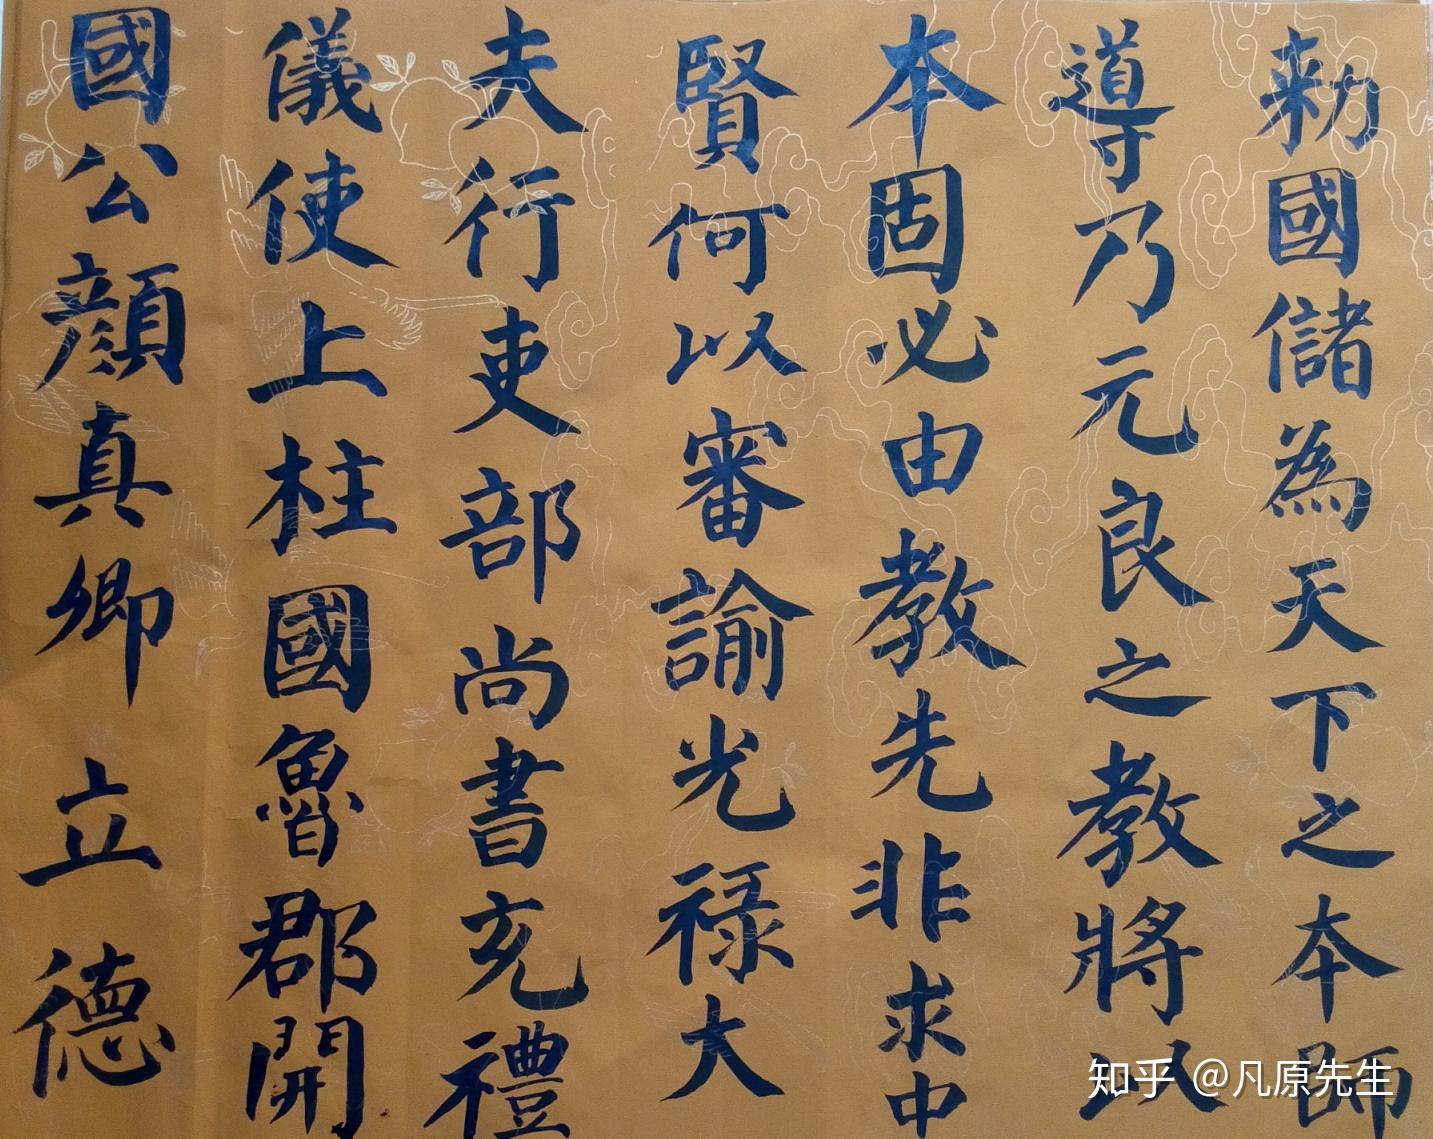 勅國儲為天下之本師
導乃元良之教將以
本固必由教先非求中
賢何以審諭光禄大
夫行吏部尚書充禮
儀使上柱國魯郡開
國公顔真卿立德
知乎 @凡原先生